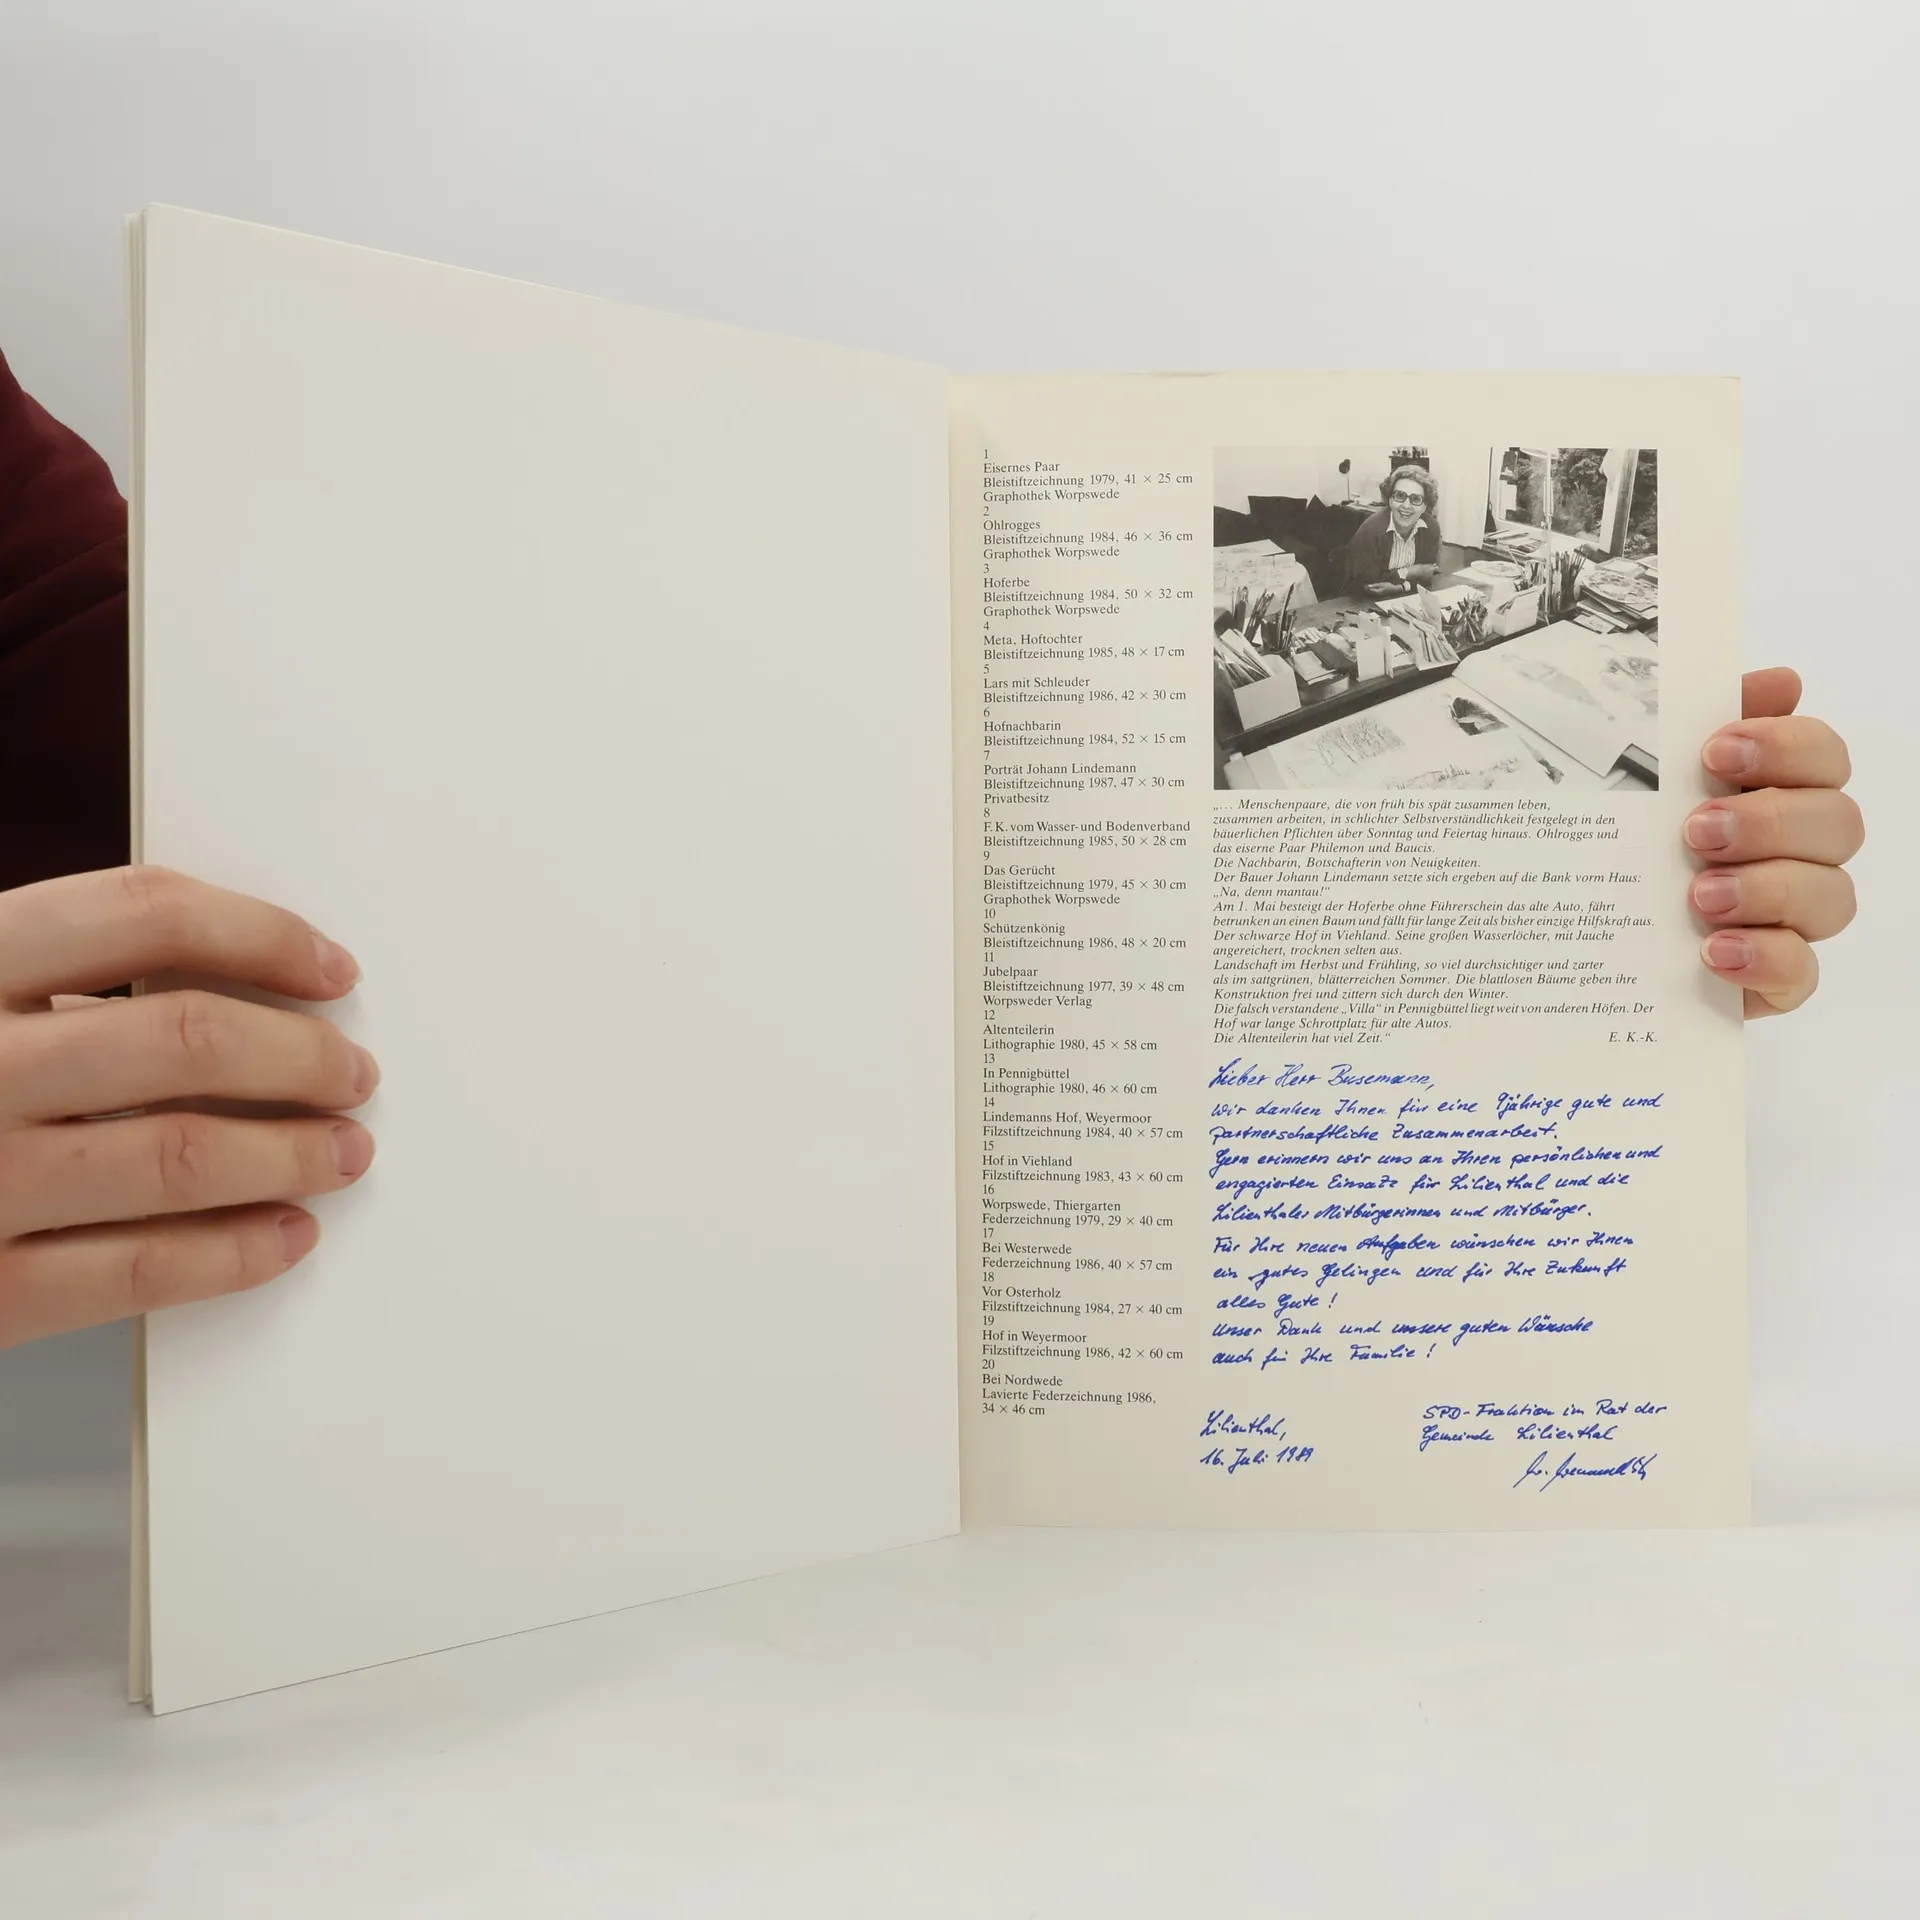 1
Eisernes Paar
Bleistiftzeichnung 1979, 41 × 25 cm
Graphothek Worpswede
2
Ohlrogges
Bleistiftzeichnung 1984, 46 × 36 cm
Graphothek Worpswede
3
Hoferbe
Bleistiftzeichnung 1984, 50 × 32 cm
Graphothek Worpswede
4
Meta, Hoftochter
Bleistiftzeichnung 1985, 48 × 17 cm
5
Lars mit Schleuder
Bleistiftzeichnung 1986, 42 × 30 cm
6
Hofnachbarin
Bleistiftzeichnung 1984, 52 × 15 cm
7
Porträt Johann Lindemann
Bleistiftzeichnung 1987, 47 × 30 cm
Privatbesitz
8
F. K. vom Wasser- und Bodenverband
Bleistiftzeichnung 1985, 50 × 28 cm
9
Das Gerücht
Bleistiftzeichnung 1979, 45 × 30 cm
Graphothek Worpswede
10
Schützenkönig
Bleistiftzeichnung 1986, 48 × 20 cm
11
Jubelpaar
Bleistiftzeichnung 1977, 39 × 48 cm
Worpsweder Verlag
12
Altenteilerin
Lithographie 1980, 45 × 58 cm
13
In Pennigbüttel
Lithographie 1980, 46 × 60 cm
14
Lindemanns Hof, Weyermoor
Filzstiftzeichnung 1984, 40 × 57 cm
15
Hof in Viehland
Filzstiftzeichnung 1983, 43 × 60 cm
16
Worpswede, Thiergarten
Federzeichnung 1979, 29 × 40 cm
17
Bei Westerwede
Federzeichnung 1986, 40 × 57 cm
18
Vor Osterholz
Filzstiftzeichnung 1984, 27 × 40 cm
19
Hof in Weyermoor
Filzstiftzeichnung 1986, 42 × 60 cm
20
Bei Nordwede
Lavierte Federzeichnung 1986,
34 × 46 cm
„… Menschenpaare, die von früh bis spät zusammen leben,
zusammen arbeiten, in schlichter Selbstverständlichkeit festgelegt in den
bäuerlichen Pflichten über Sonntag und Feiertag hinaus. Ohlrogges und
das eiserne Paar Philemon und Baucis.
Die Nachbarin, Botschafterin von Neuigkeiten.
Der Bauer Johann Lindemann setzte sich ergeben auf die Bank vorm Haus:
„Na, denn mantau!“
Am 1. Mai besteigt der Hoferbe ohne Führerschein das alte Auto, fährt
betrunken an einen Baum und fällt für lange Zeit als bisher einzige Hilfskraft aus.
Der schwarze Hof in Viehland. Seine großen Wasserlöcher, mit Jauche
angereichert, trocknen selten aus.
Landschaft im Herbst und Frühling, so viel durchsichtiger und zarter
als im sattgrünen, blätterreichen Sommer. Die blattlosen Bäume geben ihre
Konstruktion frei und zittern sich durch den Winter.
Die falsch verstandene „Villa“ in Pennigbüttel liegt weit von anderen Höfen. Der
Hof war lange Schrottplatz für alte Autos.
Die Altenteilerin hat viel Zeit.“ E. K.-K.
Lieber Herr Busemann,
wir danken Ihnen für eine 9jährige gute und
partnerschaftliche Zusammenarbeit.
Gern erinnern wir uns an Ihren persönlichen und
engagierten Einsatz für Lilienthal und die
Lilienthaler Mitbürgerinnen und Mitbürger.
Für Ihre neuen Aufgaben wünschen wir Ihnen
ein gutes Gelingen und für Ihre Zukunft
alles Gute!
Unser Dank und unsere guten Wünsche
auch für Ihre Familie!
Lilienthal,
16. Juli 1989
SPD-Fraktion im Rat der
Gemeinde Lilienthal